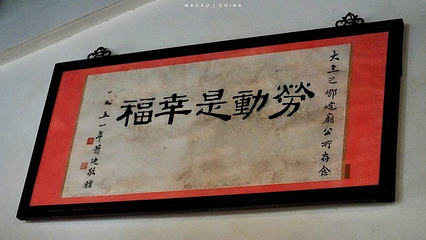 MACAU | CHINA
大三巴哪咤廟公所存念
勞動是幸福
一九五一年 敬贈